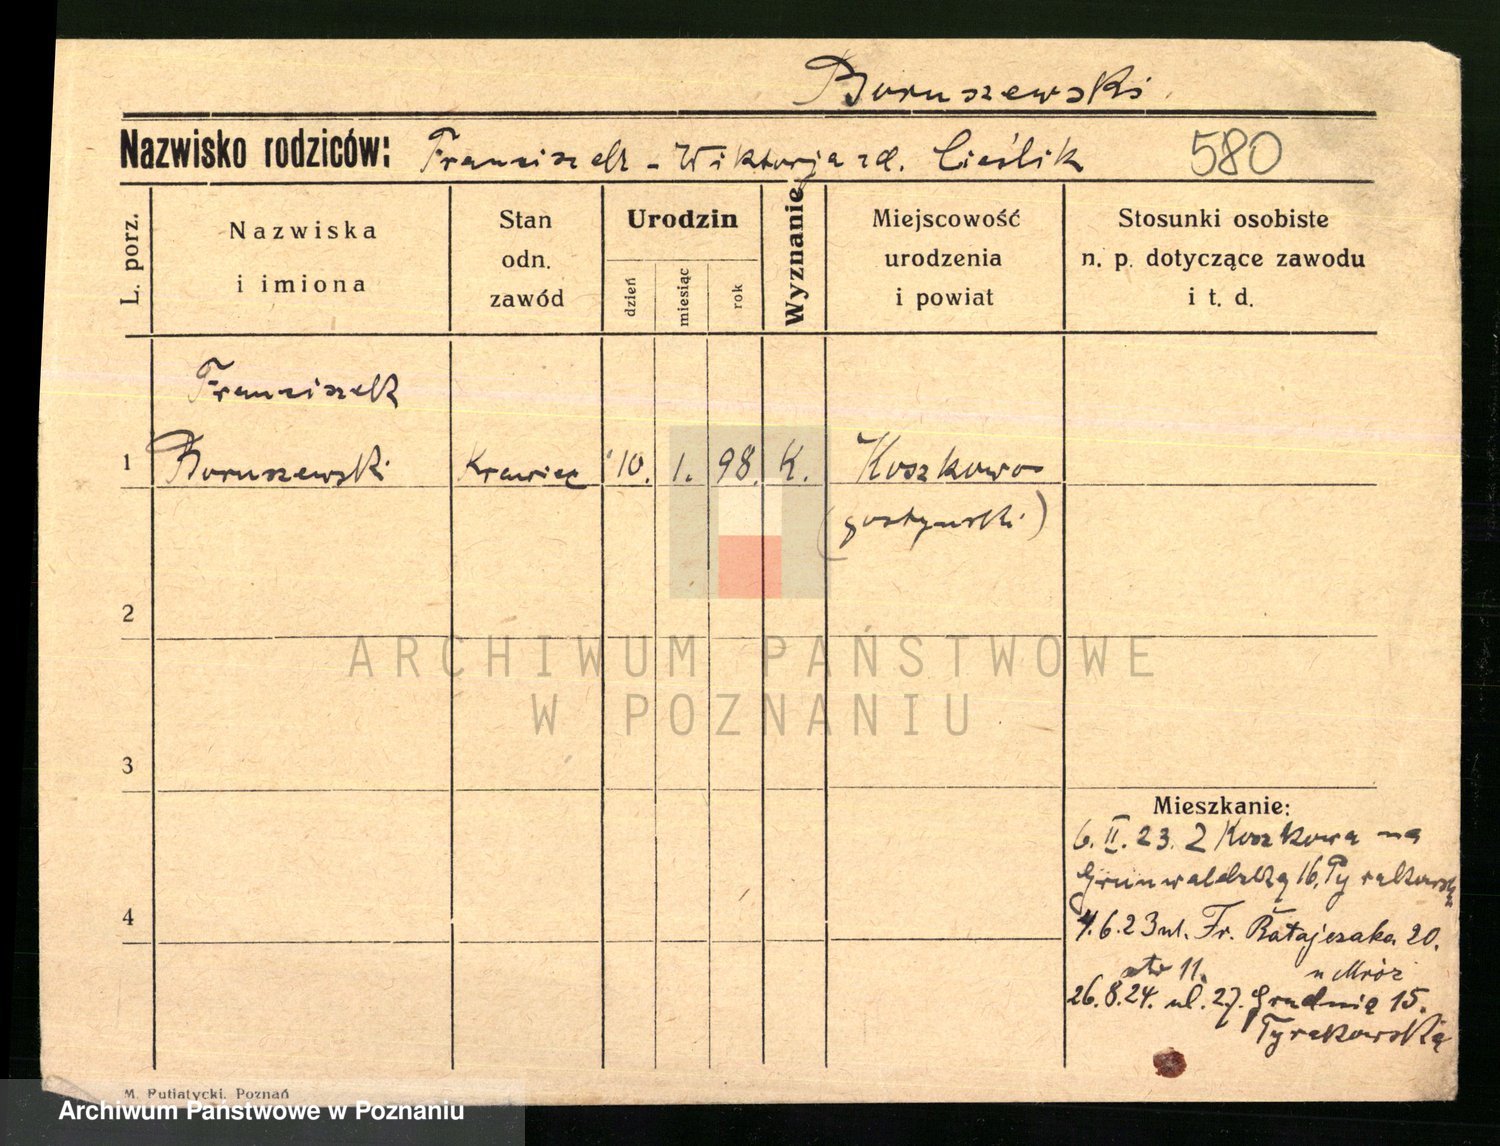 Boruszewski
Nazwisko rodziców: Franciszek - Wiktorja zd. Cieślik 580
L. porz.
Nazwiska
i imiona
Stan
odn.
zawód
Urodzin
dzień
miesiąc
rok
Wyznanie
Miejscowość
urodzenia
i powiat
Stosunki osobiste
n. p. dotyczące zawodu
i t. d.
Franciszek
1 Boruszewski Krawiec 10. 1. 98. K. Koszkowo
(gostyński)
2
ARCHIWUM PAŃSTWOWE
W POZNANIU
3
Mieszkanie:
6. II. 23. Z Koszkowa na
Grunwaldzką 16.
4
4.6.23 ul. Fr. Ratajczaka 20.
11. u Mróz
26.8.24. ul. 27. Grudnia 15.
M. Putiatycki, Poznań
Archiwum Państwowe w Poznaniu